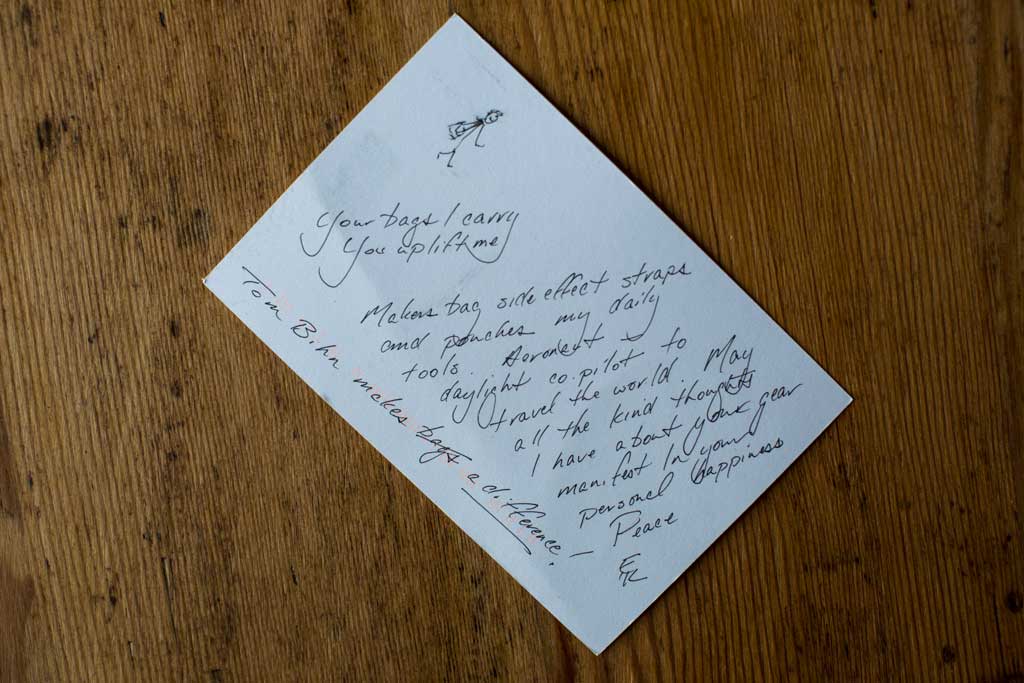 Your bags I carry
You uplift me
Makers bag side effect straps
and pouches my daily
tools. Aeronaut &
daylight co.pilot to
travel the world. May
all the kind thoughts
I have about your gear
manifest In your
personal happiness
Peace
Tom Bihn makes bags a difference!